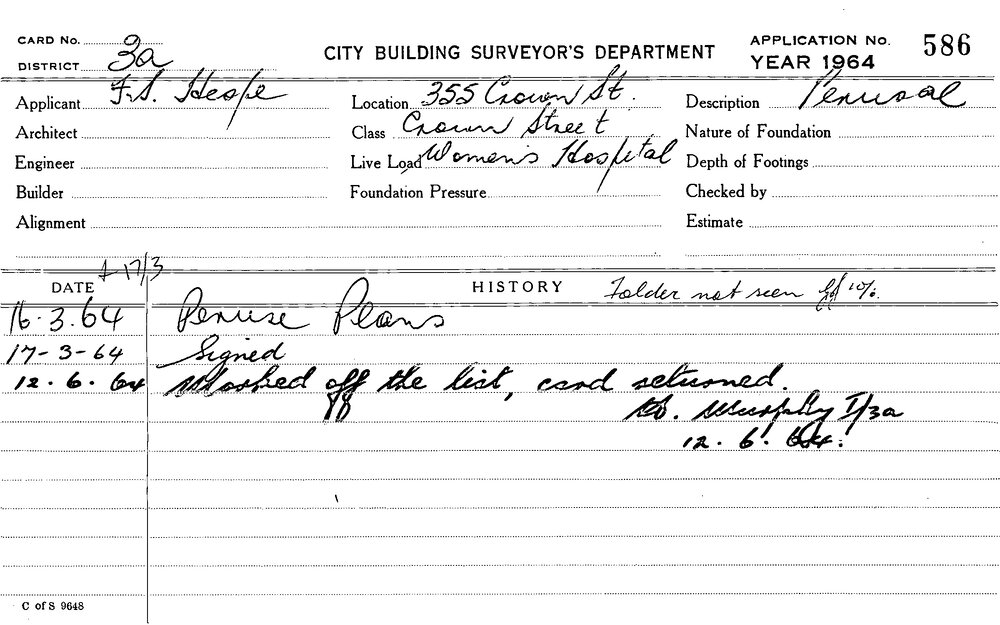 CARD No.
DISTRICT 3a
CITY BUILDING SURVEYOR'S DEPARTMENT
APPLICATION No. 586
YEAR 1964
Applicant F.S. Hespe Location 355 Crown St. Description Perusal
Architect Class Crown Street Nature of Foundation
Engineer Live Load Women's Hospital Depth of Footings
Builder Foundation Pressure Checked by
Alignment Estimate
17/3
DATE HISTORY Folder not seen
16.3.64 Peruse Plans
17-3-64 Signed
12.6.64 Marked off the list, card returned.
Murphy I/3a
12.6.64.
C of S 9648